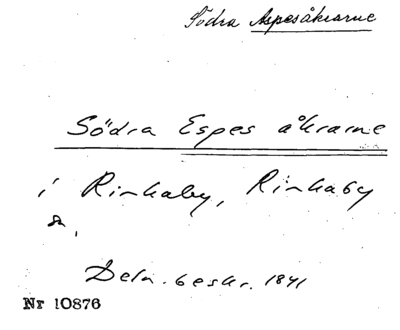 Södra Aspesåkrarne
Södra Espes åkrarne
i Rinkaby, Rinkaby
sn.
Deln.beskr. 1841
Nr 10876